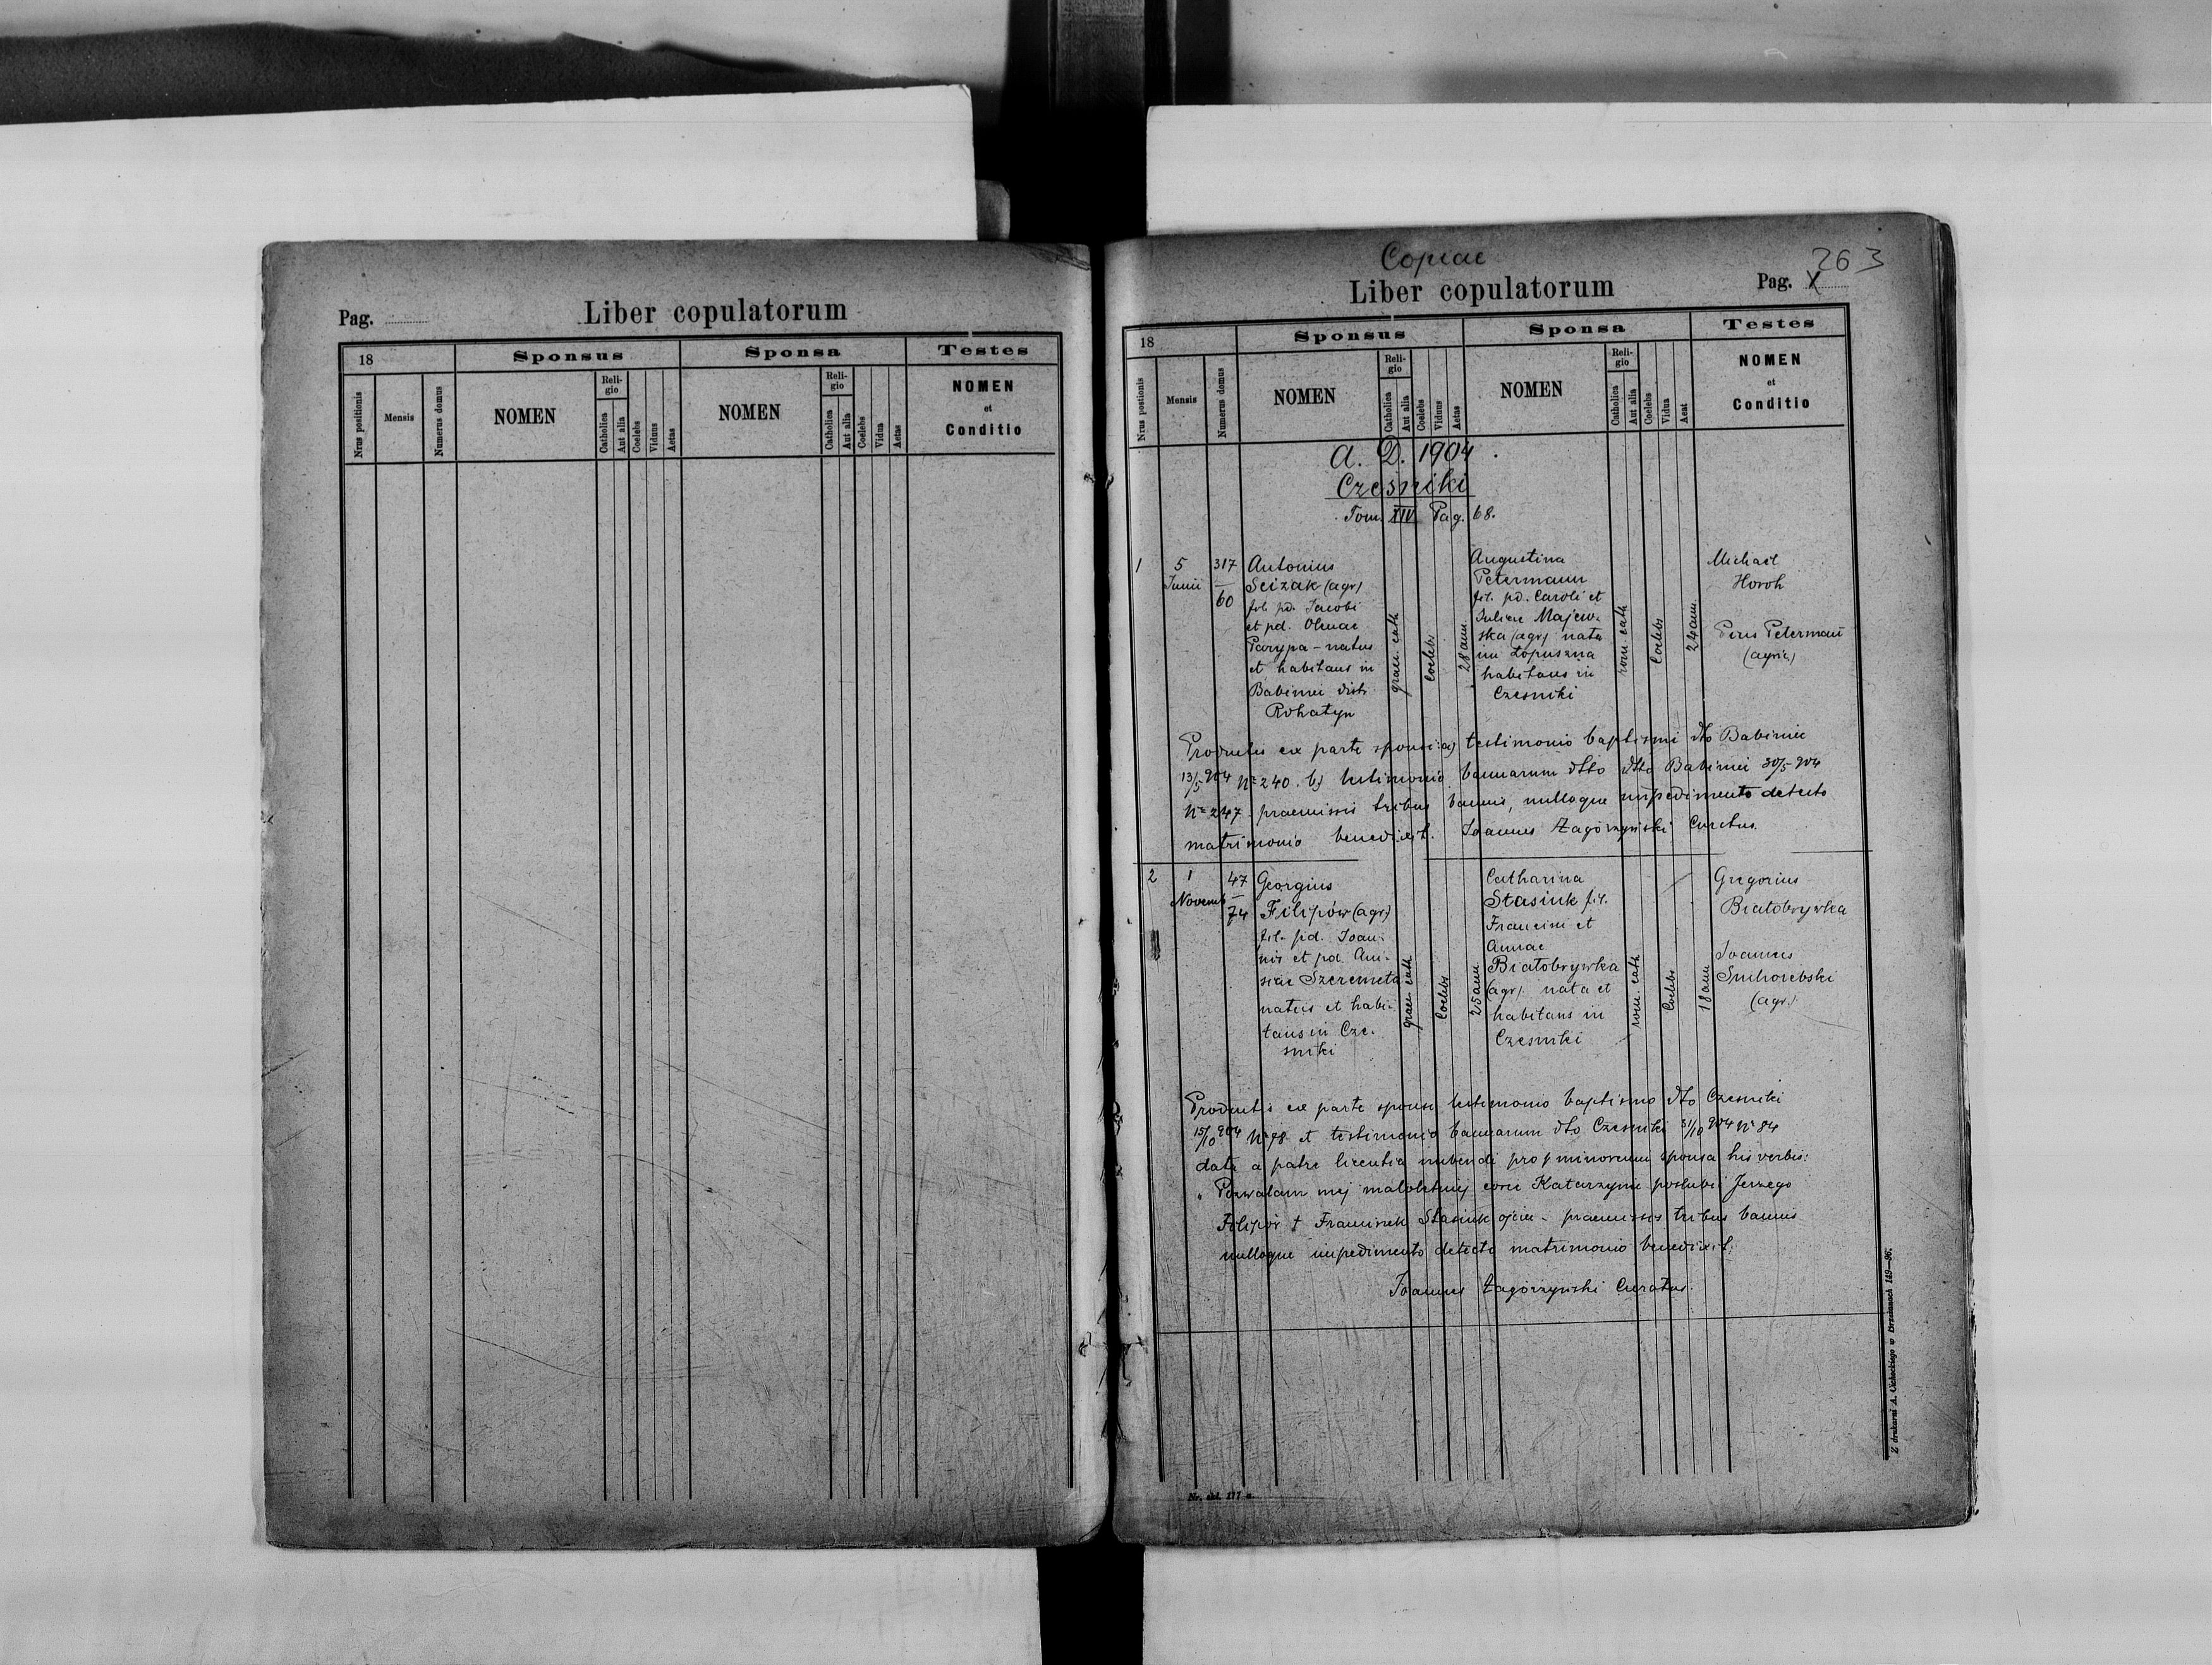 Pag.
Liber copulatorum
18
Sponsus
Sponsa
Testes
Nrus positionis
Mensis
Numerus domus
NOMEN
Reli-
gio
Catholica
Aut alia
Coelebs
Viduus
Aetas
NOMEN
Reli-
gio
Catholica
Aut alia
Coelebs
Vidua
Aetas
NOMEN
et
Conditio
Copiae
263
Liber copulatorum
Pag.
18
Sponsus
Sponsa
Testes
Nrus postionis
Mensis
Numerus domus
NOMEN
Reli-
gio
Catholica
Aut alia
Coelebs
Viduus
Aetas
NOMEN
Reli-
gio
Catholica
Aut alia
Coelebs
Vidua
Aeat
NOMEN
et
Conditio
A. D. 1904
Cześniki
Tom. XIV Pag. 68.
1
5
Junii
317
60
Antonius
Scizak (agr)
fil. pd. Jacobi
et pd. Olenae
Parypa - natus
et habitans in
Babinci distr.
Rohatyn
graec. cath
Coelebs
28 ann
Augustina
Petermann
fil. pd. Caroli et
Juliae Majew-
ska (agr) nata
in Łopuszna
habitans in
Czesniki
rom. cath
Coelebs
24 ann
Michaël
Horoh
Petermann
(agric)
Productis ex parte sponsi: a) testimonio baptismi dto Babińce
13/5 904 No 240. b) testimonio bannorum dtto dtto Babińci 30/5 904
No 247 praemissis tribus bannis, nulloque impedimento detecto
matrimonio benedixit. Joannes Zagórzyński Curatus.
2
1
Novemb
47
74
Georgius
Filipów (agr)
fil. pd. Joan-
nis et pd. Ani-
siae Szeremeta
natus et habi-
tans in Cze-
sniki
graec. cath
Coelebs
25 ann
Catharina
Stasiuk fil.
Francisci et
Annae
Białobrywka
(agr) nata et
habitans in
Czesniki
rom. cath
Coelebs
18 ann
Gregorius
Białobrywka
Joannes
Suchorebski
(agr.)
Productis ex parte sponsi testimonio baptismo dto Czesniki
15/10 904 No 78 et testimonio bannarum dto Czesniki 31/10 904 No 84
data a patre licentia nubendi pro minorenni sponsa his verbis:
„Pozwalam mej małoletniej córce Katarzynie poślubić Jerzego
Filipów † Franciszek Stasiuk ojciec - praemissis tribus bannis
nulloque impedimento detecto matrimonio benedixit.
Joannes Zagórzyński Curatus.
Nr. skł. 117 a.
Z drukarni A. Cichockiego w Brzeżanach 149—96.